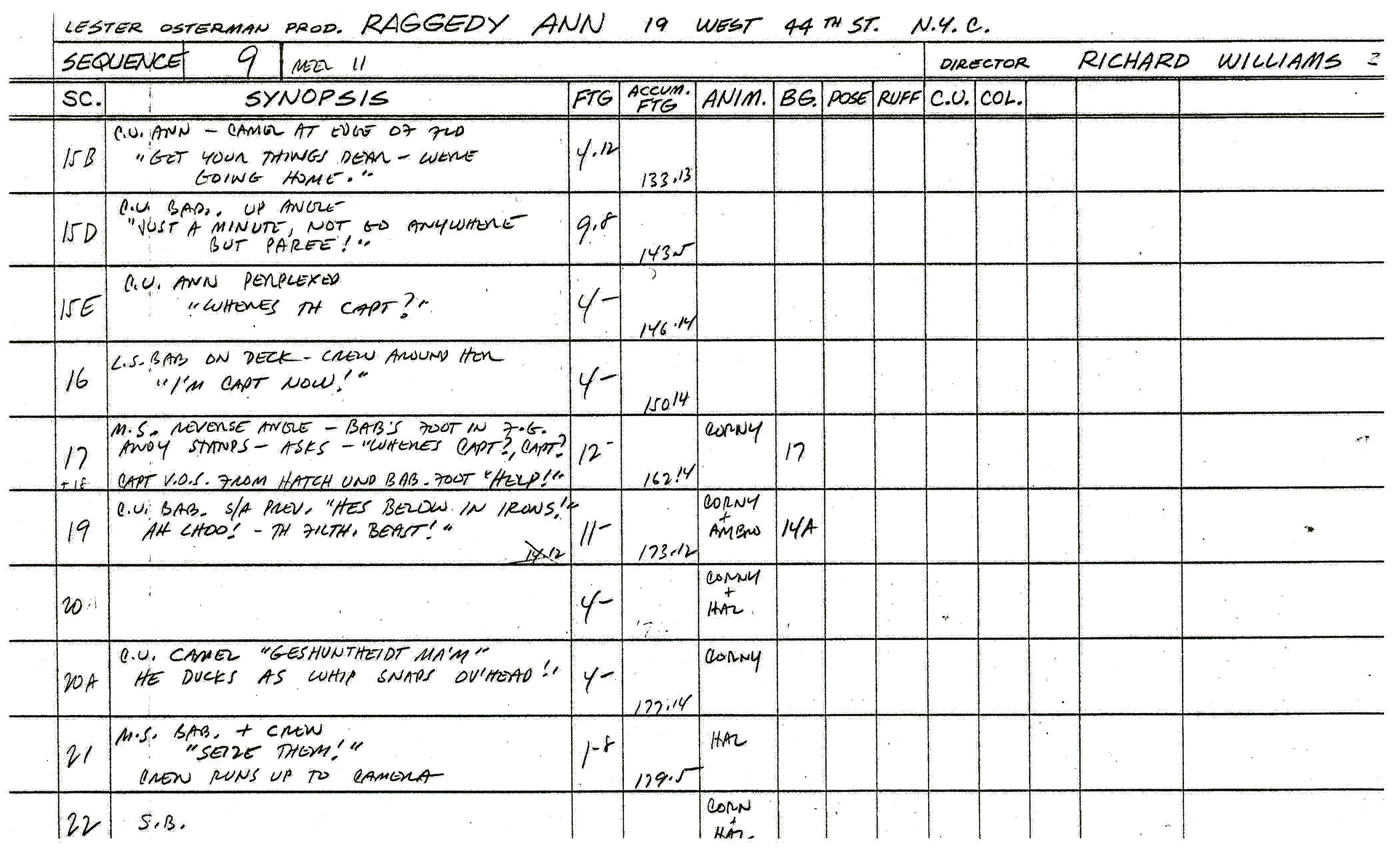 LESTER OSTERMAN PROD. RAGGEDY ANN 19 WEST 44TH ST. N.Y.C.
SEQUENCE 9 REEL 11 DIRECTOR RICHARD WILLIAMS
SC. SYNOPSIS FTG ACCUM. FTG ANIM. BG. POSE RUFF C.U. COL.
15B C.U. ANN – CAMEL AT EDGE OF FLD
"GET YOUR THINGS DEAR – WERE
GOING HOME." 4.12 133.13
15D C.U. BAB. UP ANGLE
"JUST A MINUTE, NOT GO ANYWHERE
BUT PAREE!" 9.8 143.5
15E C.U. ANN PERPLEXED
"WHERES TH CAPT?" 4– 146.14
16 L.S. BAB ON DECK – CREW AROUND HER
"I'M CAPT NOW!" 4– 150.14
17 M.S. REVERSE ANGLE – BAB'S FOOT IN F.G. CORNY
ANDY STANDS – ASKS – "WHERES CAPT?, CAPT? 12– 17
+18 CAPT V.O.S. FROM HATCH UND BAB. FOOT "HELP!" 162.14
19 C.U. BAB. S/A PREV. "HES BELOW IN IRONS! CORNY
AH CHOO! – TH FILTH. BEAST!" 11– + AMBRO 14A
14.12 173.12
20 4– CORNY + HAL
20A C.U. CAMEL "GESHUNTHEIDT MA'M" CORNY
HE DUCKS AS WHIP SNAPS OV'HEAD! 4– 177.14
21 M.S. BAB. + CREW HAL
"SEIZE THEM!" 1-8
CREW RUNS UP TO CAMERA 179.5
22 S.B. CORN + HAL